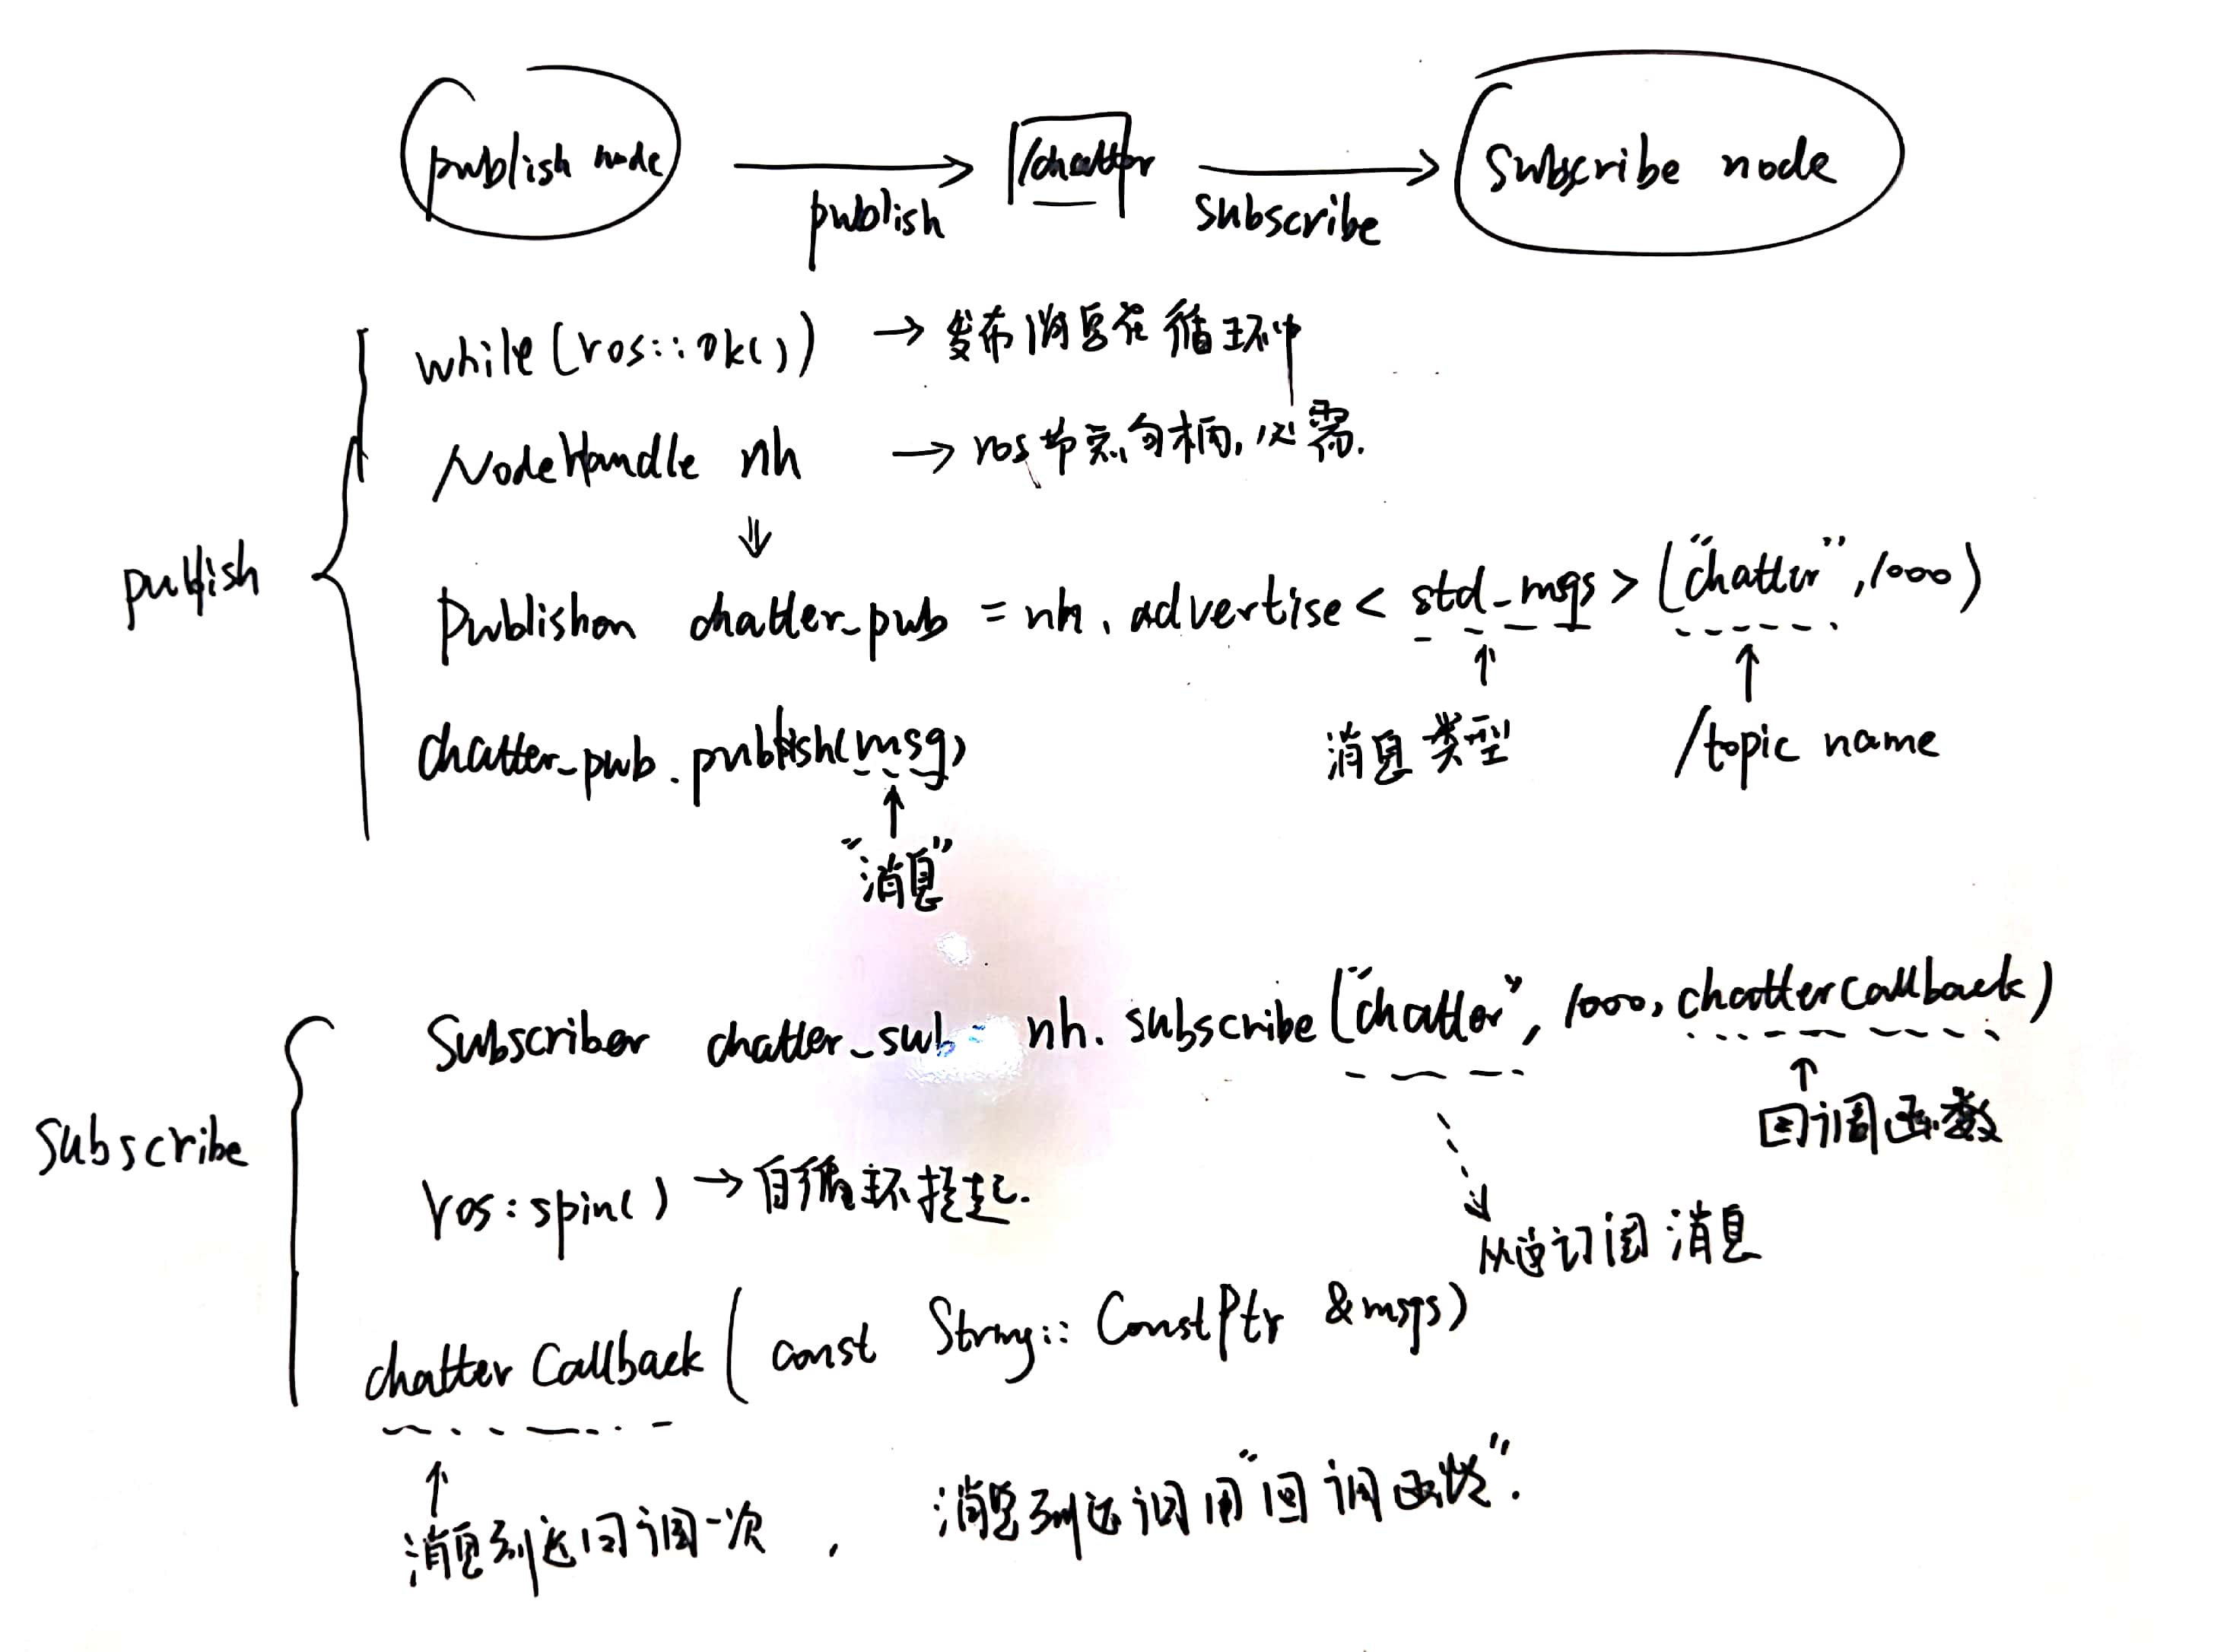 publish node
publish
/chatter
subscribe
Subscribe node
publish
while(ros::ok()) → 发布消息在循环中
NodeHandle nh → ros节点句柄,必需.
Publisher chatter_pub = nh.advertise<std_mgs>("chatter",1000)
消息类型
/topic name
chatter_pub.publish(msg)
"消息"
subscribe
Subscriber chatter_sub = nh.subscribe("chatter", 1000, chattercallback)
回调函数
ros:spin() → 自循环挂起.
从这订阅消息
chatterCallback(const String::ConstPtr &msgs)
消息到达回调一次, 消息到达调用"回调函数".